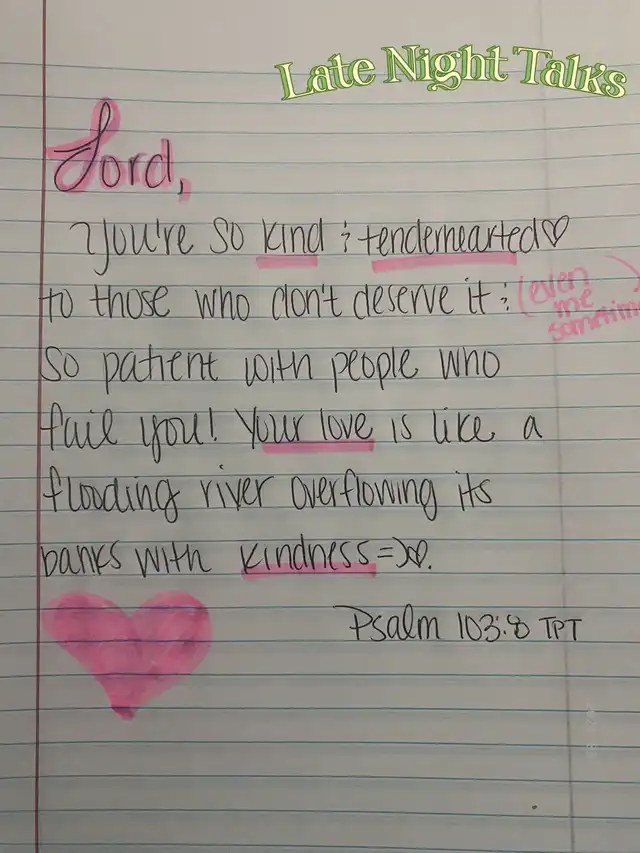 Late Night Talks
Lord,
You're so kind & tenderhearted♡
to those who don't deserve it & (even
me
sometimes)
so patient with people who
fail you! Your love is like a
flooding river overflowing its
banks with kindness=)♡.
Psalm 103:8 TPT